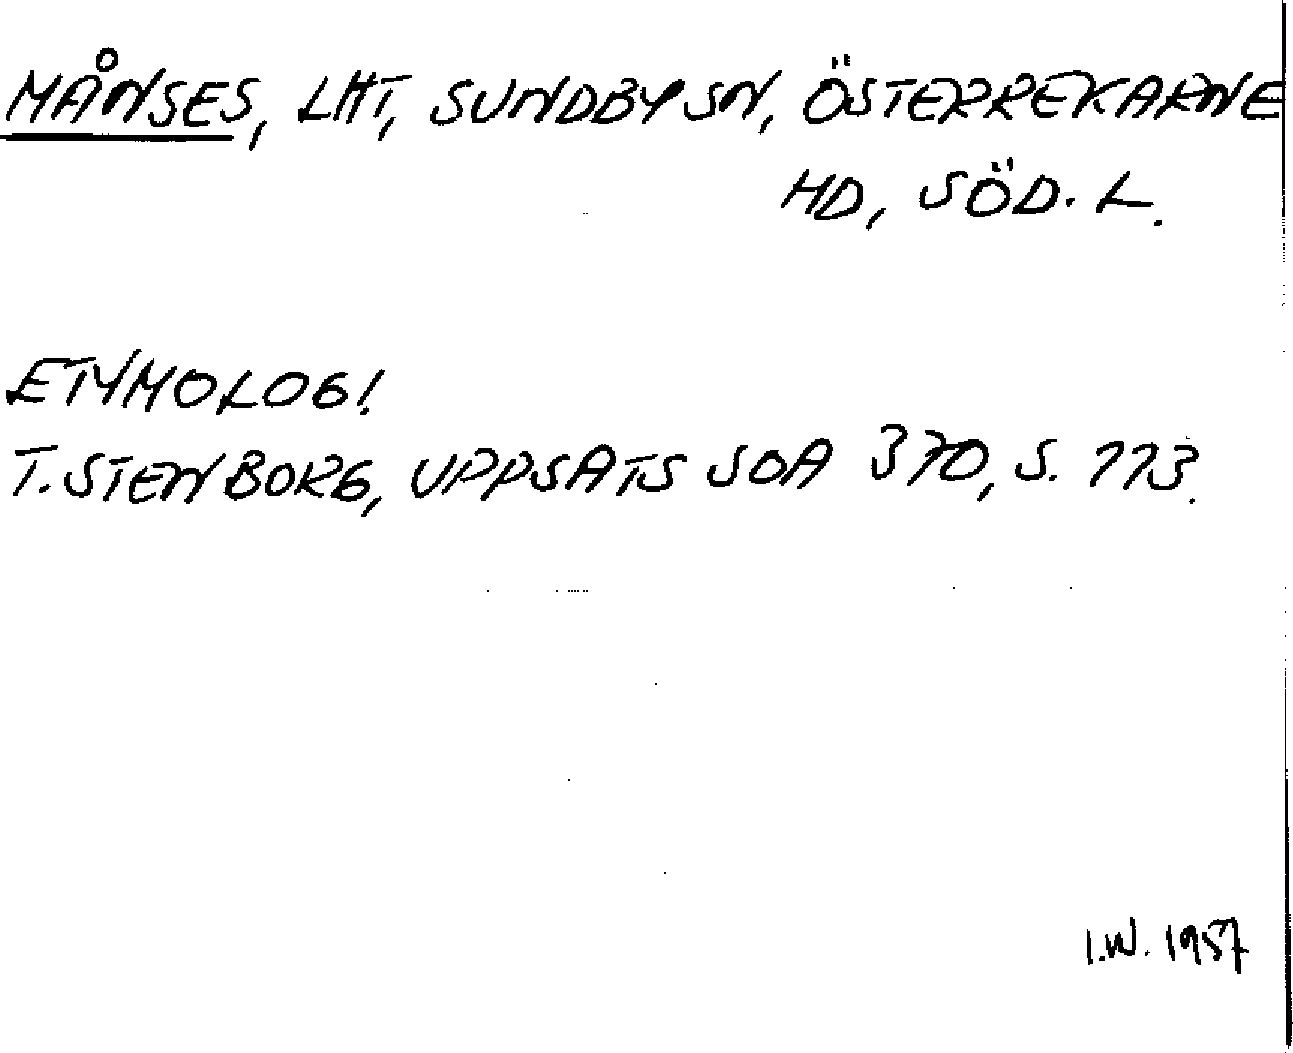 MÅNSES, LHT, SUNDBY SN, ÖSTERREKARNE
HD, SÖD. L.
ETYMOLOGI.
T. STENBORG, UPPSATS SOA 370, S. 113.
I.W. 1957